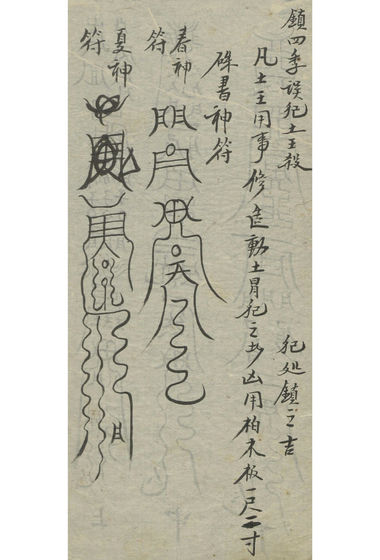 鎮四季誤犯土王殺
犯处鎮之吉
凡土王用事修造動土冐犯之必凶用柏木板一尺二寸
硃書神符
春神符
夏神符